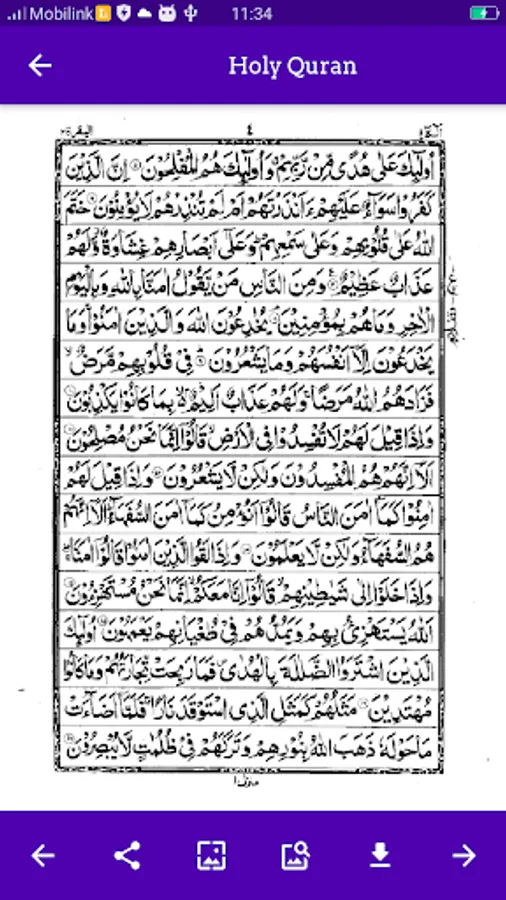 Mobilink 11:34
Holy Quran
البقرة ٢ ٤ الٓمّٓ ١
اُولٰٓئِكَ عَلٰى هُدًى مِّنْ رَّبِّهِمْ وَاُولٰٓئِكَ هُمُ الْمُفْلِحُوْنَ اِنَّ الَّذِيْنَ
كَفَرُوْا سَوَآءٌ عَلَيْهِمْ ءَاَنْذَرْتَهُمْ اَمْ لَمْ تُنْذِرْهُمْ لَا يُؤْمِنُوْنَ خَتَمَ
اللّٰهُ عَلٰى قُلُوْبِهِمْ وَعَلٰى سَمْعِهِمْ وَعَلٰٓى اَبْصَارِهِمْ غِشَاوَةٌ وَّلَهُمْ
عَذَابٌ عَظِيْمٌ وَمِنَ النَّاسِ مَنْ يَّقُوْلُ اٰمَنَّا بِاللّٰهِ وَبِالْيَوْمِ
الْاٰخِرِ وَمَا هُمْ بِمُؤْمِنِيْنَ يُخٰدِعُوْنَ اللّٰهَ وَالَّذِيْنَ اٰمَنُوْا وَمَا
يَخْدَعُوْنَ اِلَّآ اَنْفُسَهُمْ وَمَا يَشْعُرُوْنَ فِيْ قُلُوْبِهِمْ مَّرَضٌ
فَزَادَهُمُ اللّٰهُ مَرَضًا وَلَهُمْ عَذَابٌ اَلِيْمٌ بِمَا كَانُوْا يَكْذِبُوْنَ
وَاِذَا قِيْلَ لَهُمْ لَا تُفْسِدُوْا فِى الْاَرْضِ قَالُوْٓا اِنَّمَا نَحْنُ مُصْلِحُوْنَ
اَلَآ اِنَّهُمْ هُمُ الْمُفْسِدُوْنَ وَلٰكِنْ لَّا يَشْعُرُوْنَ وَاِذَا قِيْلَ لَهُمْ
اٰمِنُوْا كَمَآ اٰمَنَ النَّاسُ قَالُوْٓا اَنُؤْمِنُ كَمَآ اٰمَنَ السُّفَهَآءُ اَلَآ اِنَّهُمْ
هُمُ السُّفَهَآءُ وَلٰكِنْ لَّا يَعْلَمُوْنَ وَاِذَا لَقُوا الَّذِيْنَ اٰمَنُوْا قَالُوْٓا اٰمَنَّا
وَاِذَا خَلَوْا اِلٰى شَيٰطِيْنِهِمْ قَالُوْٓا اِنَّا مَعَكُمْ اِنَّمَا نَحْنُ مُسْتَهْزِءُوْنَ
اَللّٰهُ يَسْتَهْزِئُ بِهِمْ وَيَمُدُّهُمْ فِيْ طُغْيَانِهِمْ يَعْمَهُوْنَ اُولٰٓئِكَ
الَّذِيْنَ اشْتَرَوُا الضَّلٰلَةَ بِالْهُدٰى فَمَا رَبِحَتْ تِّجَارَتُهُمْ وَمَا كَانُوْا
مُهْتَدِيْنَ مَثَلُهُمْ كَمَثَلِ الَّذِى اسْتَوْقَدَ نَارًا فَلَمَّآ اَضَآءَتْ
مَا حَوْلَهٗ ذَهَبَ اللّٰهُ بِنُوْرِهِمْ وَتَرَكَهُمْ فِيْ ظُلُمٰتٍ لَّا يُبْصِرُوْنَ
منزل ١